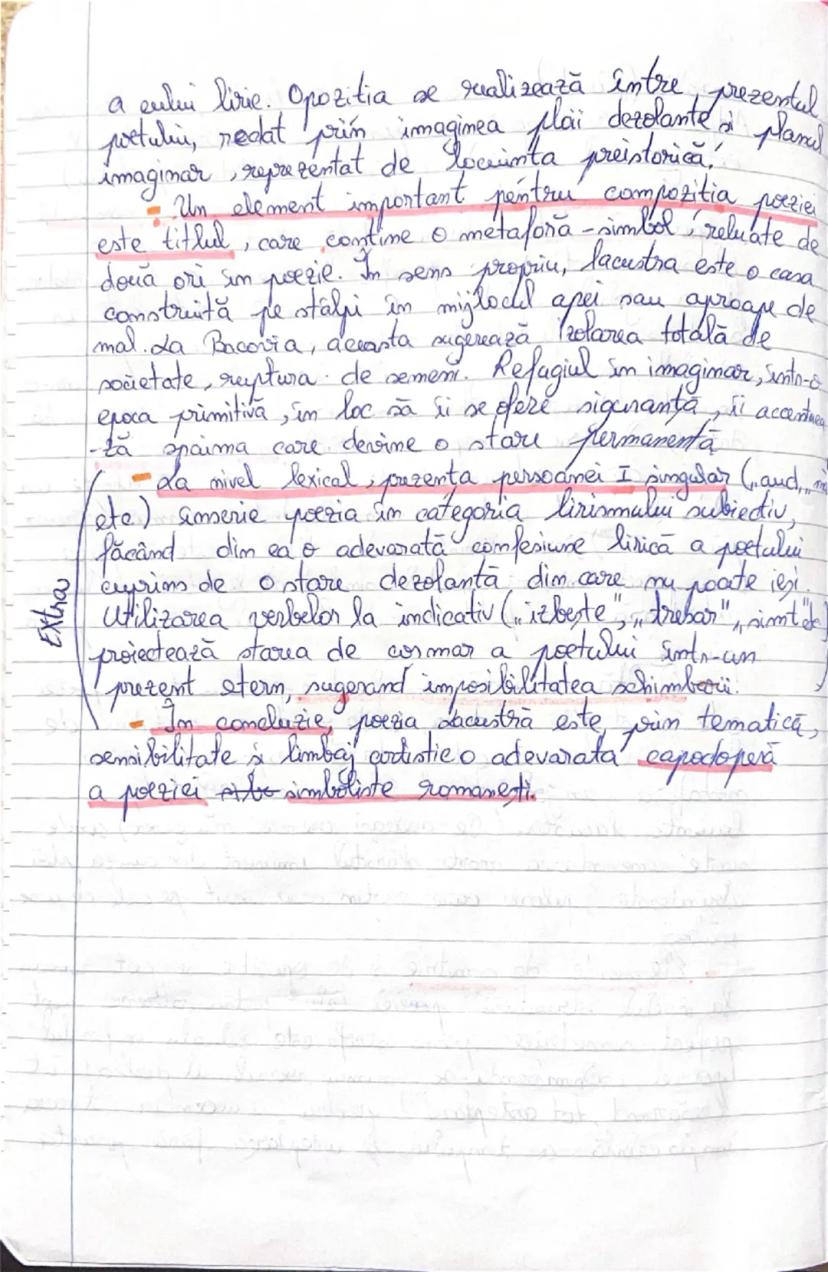 a eului liric. Opoziția se realizează între prezentul
poetului, redat prin imaginea ploii dezolante și planul
imaginar, reprezentat de locuința preistorică.
- Un element important pentru compoziția poeziei
este titlul, care conține o metaforă-simbol, reluate de
două ori în poezie. În sens propriu, lacustra este o casa
construită pe stâlpi în mijlocul apei sau aproape de
mal. La Bacovia, aceasta sugerează izolarea totală de
societate, ruptura de semeni. Refugiul în imaginar, într-o
epoca primitivă, în loc să îi se ofere siguranță, îi accentuea
-ză spaima care devine o stare permanentă
- La nivel lexical, prezența persoanei I singular („aud,
etc) înscrie poezia în categoria lirismului subiectiv,
făcând din ea o adevarată confesiune lirică a poetului
cuprins de o stare dezolantă din care nu poate ieși.
Utilizarea verbelor la indicativ („izbește", „tresar", „simt" etc)
proiectează starea de cosmar a poetului într-un
prezent etern, sugerand imposibilitatea schimbarii.
Extra
- În concluzie, poezia Lacustră este, prin tematică,
sensibilitate și limbaj artistic o adevarata capodoperă
a poeziei simboliste romanești.